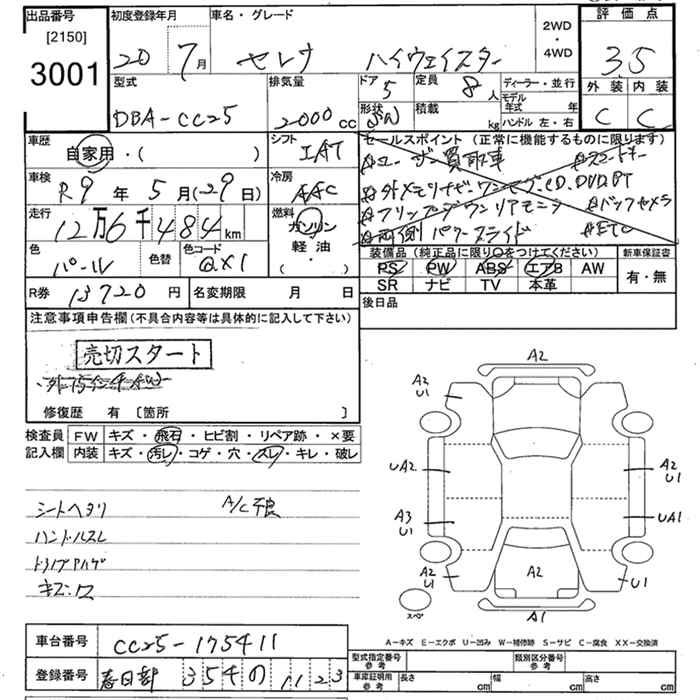 出品番号 [2150] 3001
初度登録年月 20 7月
車名・グレード セレナ ハイウェイスター
2WD・4WD
評価点 3.5
外装 C 内装 C
型式 DBA-CC25
排気量 2000cc
ドア 5
形状 SW
定員 8人
積載 kg
ディーラー・並行
モデル年式 年
ハンドル 左・右
車歴 自家用・( )
シフト IAT
車検 R9年5月(29日)
冷房 AAC
走行 12万6千484km
燃料 ガソリン 軽油・( )
色 パール
色替
色コード QX1
セールスポイント(正常に機能するものに限ります)
ユーザー買取車
スマートキー
外メモリナビ ワンセグ.CD.DVD BT
フリップダウンリアモニター バックカメラ
両側パワースライド ETC
装備品(純正品に限り○をつけてください)
PS PW ABS エアB AW
SR ナビ TV 本革
新車保証書 有・無
R券 13720円
名変期限 月 日
後日品
注意事項申告欄(不具合内容等は具体的に記入して下さい)
売切スタート
修復歴 有 [箇所 ]
検査員記入欄
FW キズ・飛石・ヒビ割・リペア跡・×要
内装 キズ・汚レ・コゲ・穴・スレ・キレ・破レ
シートヘタリ A/C不良
ハンドルスレ
キズ・ワレ
A2
A2 U1
A2 U1
UA2
A3 U1
UA1
A2 U1
A2
U1
A1
スペア
A-キズ E-エクボ U-凹み W-補修跡 S-サビ C-腐食 XX-交換済
車台番号 CC25-175411
登録番号 春日部 354 の 1123
型式指定番号 参考
類別区分番号 参考
車庫証明用 参考 長さ cm 幅 cm 高さ cm